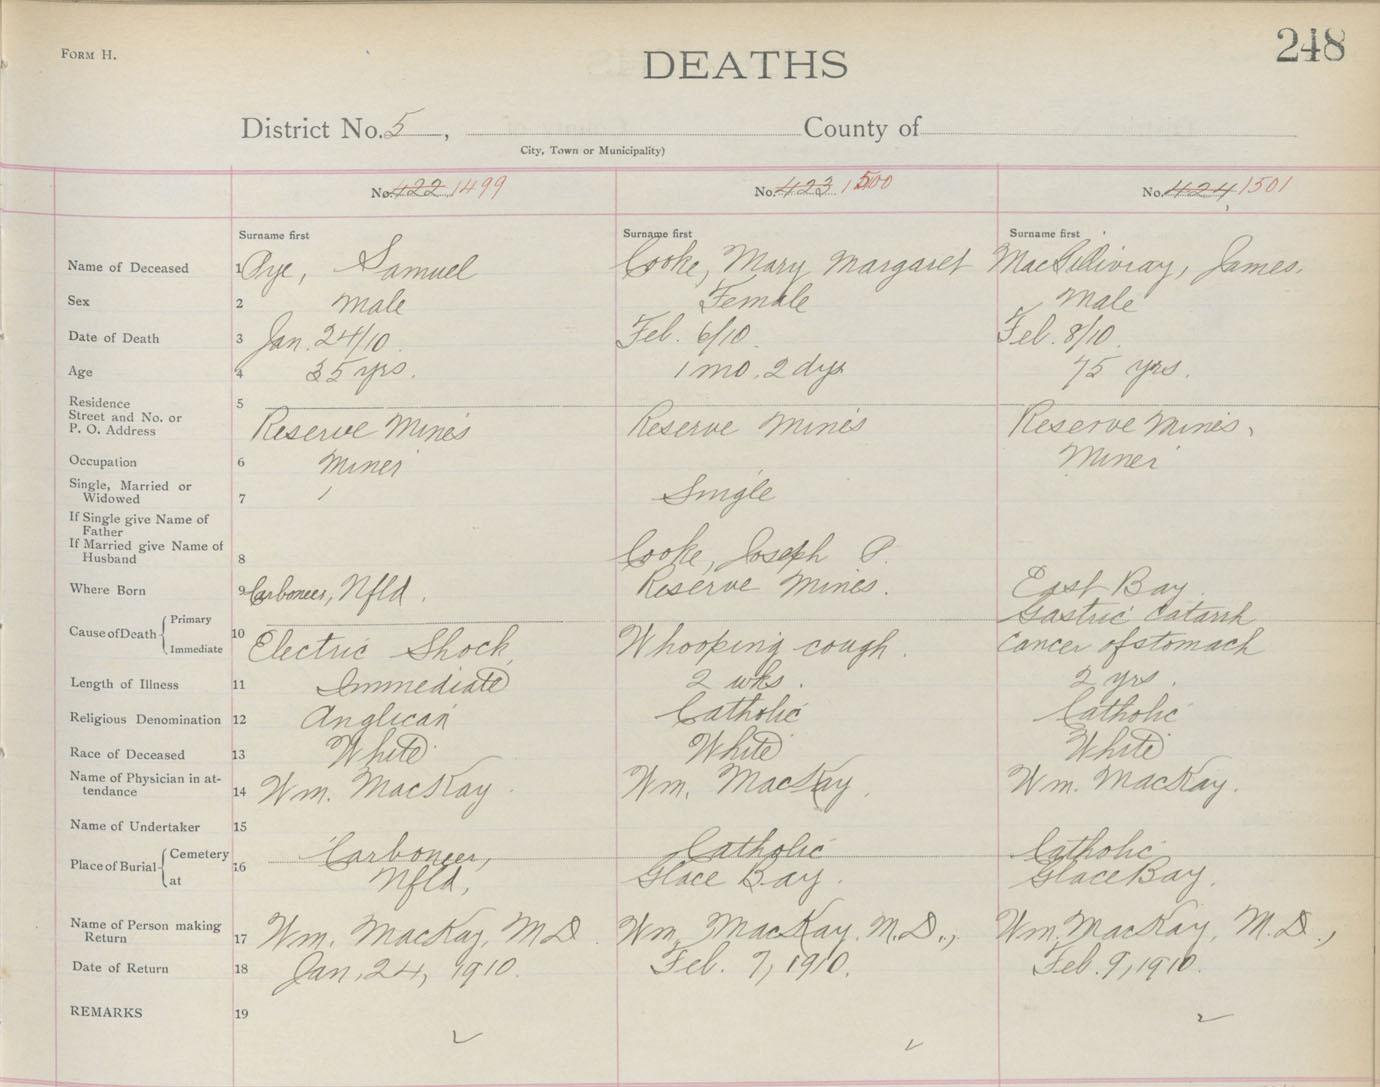 FORM H.
DEATHS
248
District No. 5, County of
City, Town or Municipality)
No. 422 1499 No. 423 1500 No. 424 1501
Surname first Surname first Surname first
Name of Deceased 1 Pye, Samuel Cooke, Mary Margaret MacGillivray, James.
Sex 2 Male Female Male
Date of Death 3 Jan. 24/10. Feb. 6/10. Feb. 8/10.
Age 4 35 yrs. 1 mo. 2 dys 75 yrs.
Residence 5
Street and No. or
P. O. Address Reserve Mines Reserve Mines Reserve Mines.
Occupation 6 Miner Miner
Single, Married or
Widowed 7 Single
If Single give Name of
Father
If Married give Name of
Husband 8 Cooke, Joseph P.
Where Born 9 Carboneer, Nfld. Reserve Mines. East Bay
Cause of Death Primary Gastric Catarrh
10 Immediate Electric Shock Whooping cough. Cancer of stomach
Length of Illness 11 Immediate 2 wks. 2 yrs.
Religious Denomination 12 Anglican Catholic Catholic
Race of Deceased 13 White White White
Name of Physician in at-
tendance 14 Wm. MacKay. Wm. MacKay. Wm. MacKay.
Name of Undertaker 15
Place of Burial Cemetery 16 Carboneer, Catholic Catholic
at Nfld. Glace Bay. Glace Bay.
Name of Person making
Return 17 Wm. MacKay, M.D. Wm. MacKay. M.D., Wm. MacKay, M.D.,
Date of Return 18 Jan. 24, 1910. Feb. 7, 1910. Feb. 9, 1910.
REMARKS 19